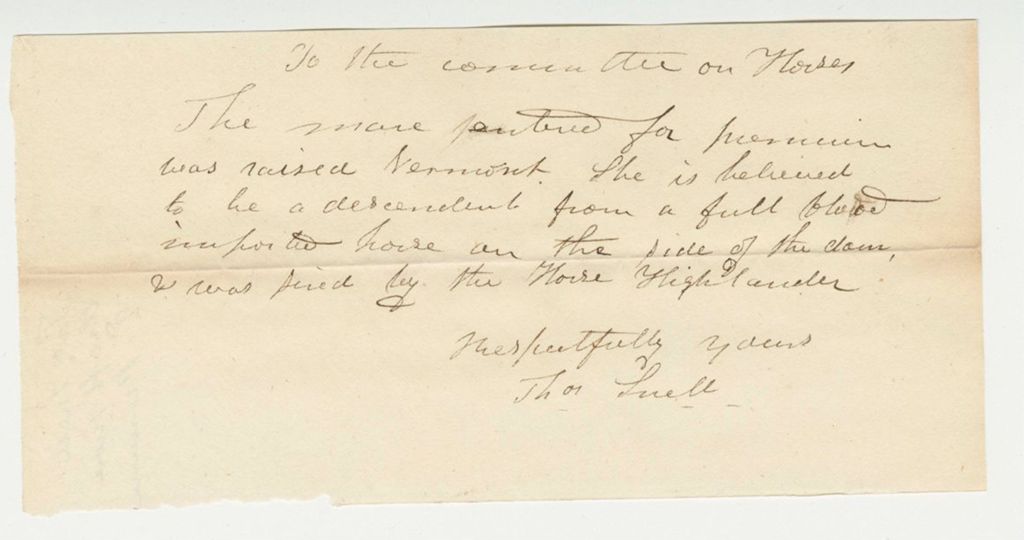 To the committee on Horses
The mare entered for premium
was raised Vermont. She is believed
to be a descendent from a full blood
imported horse on the side of the dam,
& was sired by the Horse Highlander
Respectfully yours
Thos Snell